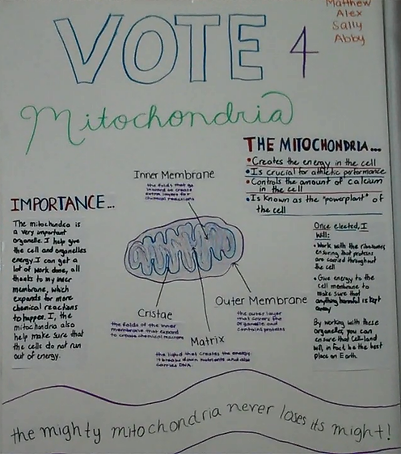 Matthew
Alex
Sally
Abby
VOTE 4
Mitochondria
THE MITOCHONDRIA...
• Creates the energy in the cell
• Is crucial for athletic performance
• Controls the amount of calcium
in the cell
• Is known as the "powerplant" of
the cell
Inner Membrane
the folds that go
inward to create
extra layers for
chemical reactions
IMPORTANCE...
The mitochondria is
a very important
organelle. I help give
the cell and organelles
energy. I can get a
lot of work done, all
thanks to my inner
membrane, which
expands for more
chemical reactions
to happen. I, the
mitochondria also
help make sure that
the cells do not run
out of energy.
Once elected, I
will:
• Work with the ribosomes
ensuring that proteins
are carried throughout
the cell
• Give energy to the
cell membrane to
make sure that
anything harmful is kept
away
By working with these
organelles, you can
ensure that Cell-land
will, in fact, be the best
place on Earth.
Outer Membrane
the outer layer
that covers the
organelle and
contains proteins
Cristae
the folds of the inner
membrane that expand
to increase chemical reactions
Matrix
the liquid that creates the energy
to break down nutrients and also
carries DNA.
the mighty mitochondria never loses its might!